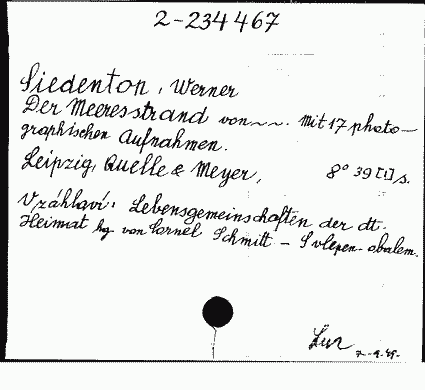 2-234467
Siedentop, Werner
Der Meeresstrand von ~~. Mit 17 photo-
graphischen Aufnahmen.
Leipzig, Quelle & Meyer, 8° 39 [1] s.
V záhlaví: Lebensgemeinschaften der dt.
Heimat hg von Cornel Schmitt - S vlepen. obalem.
7-9.49.